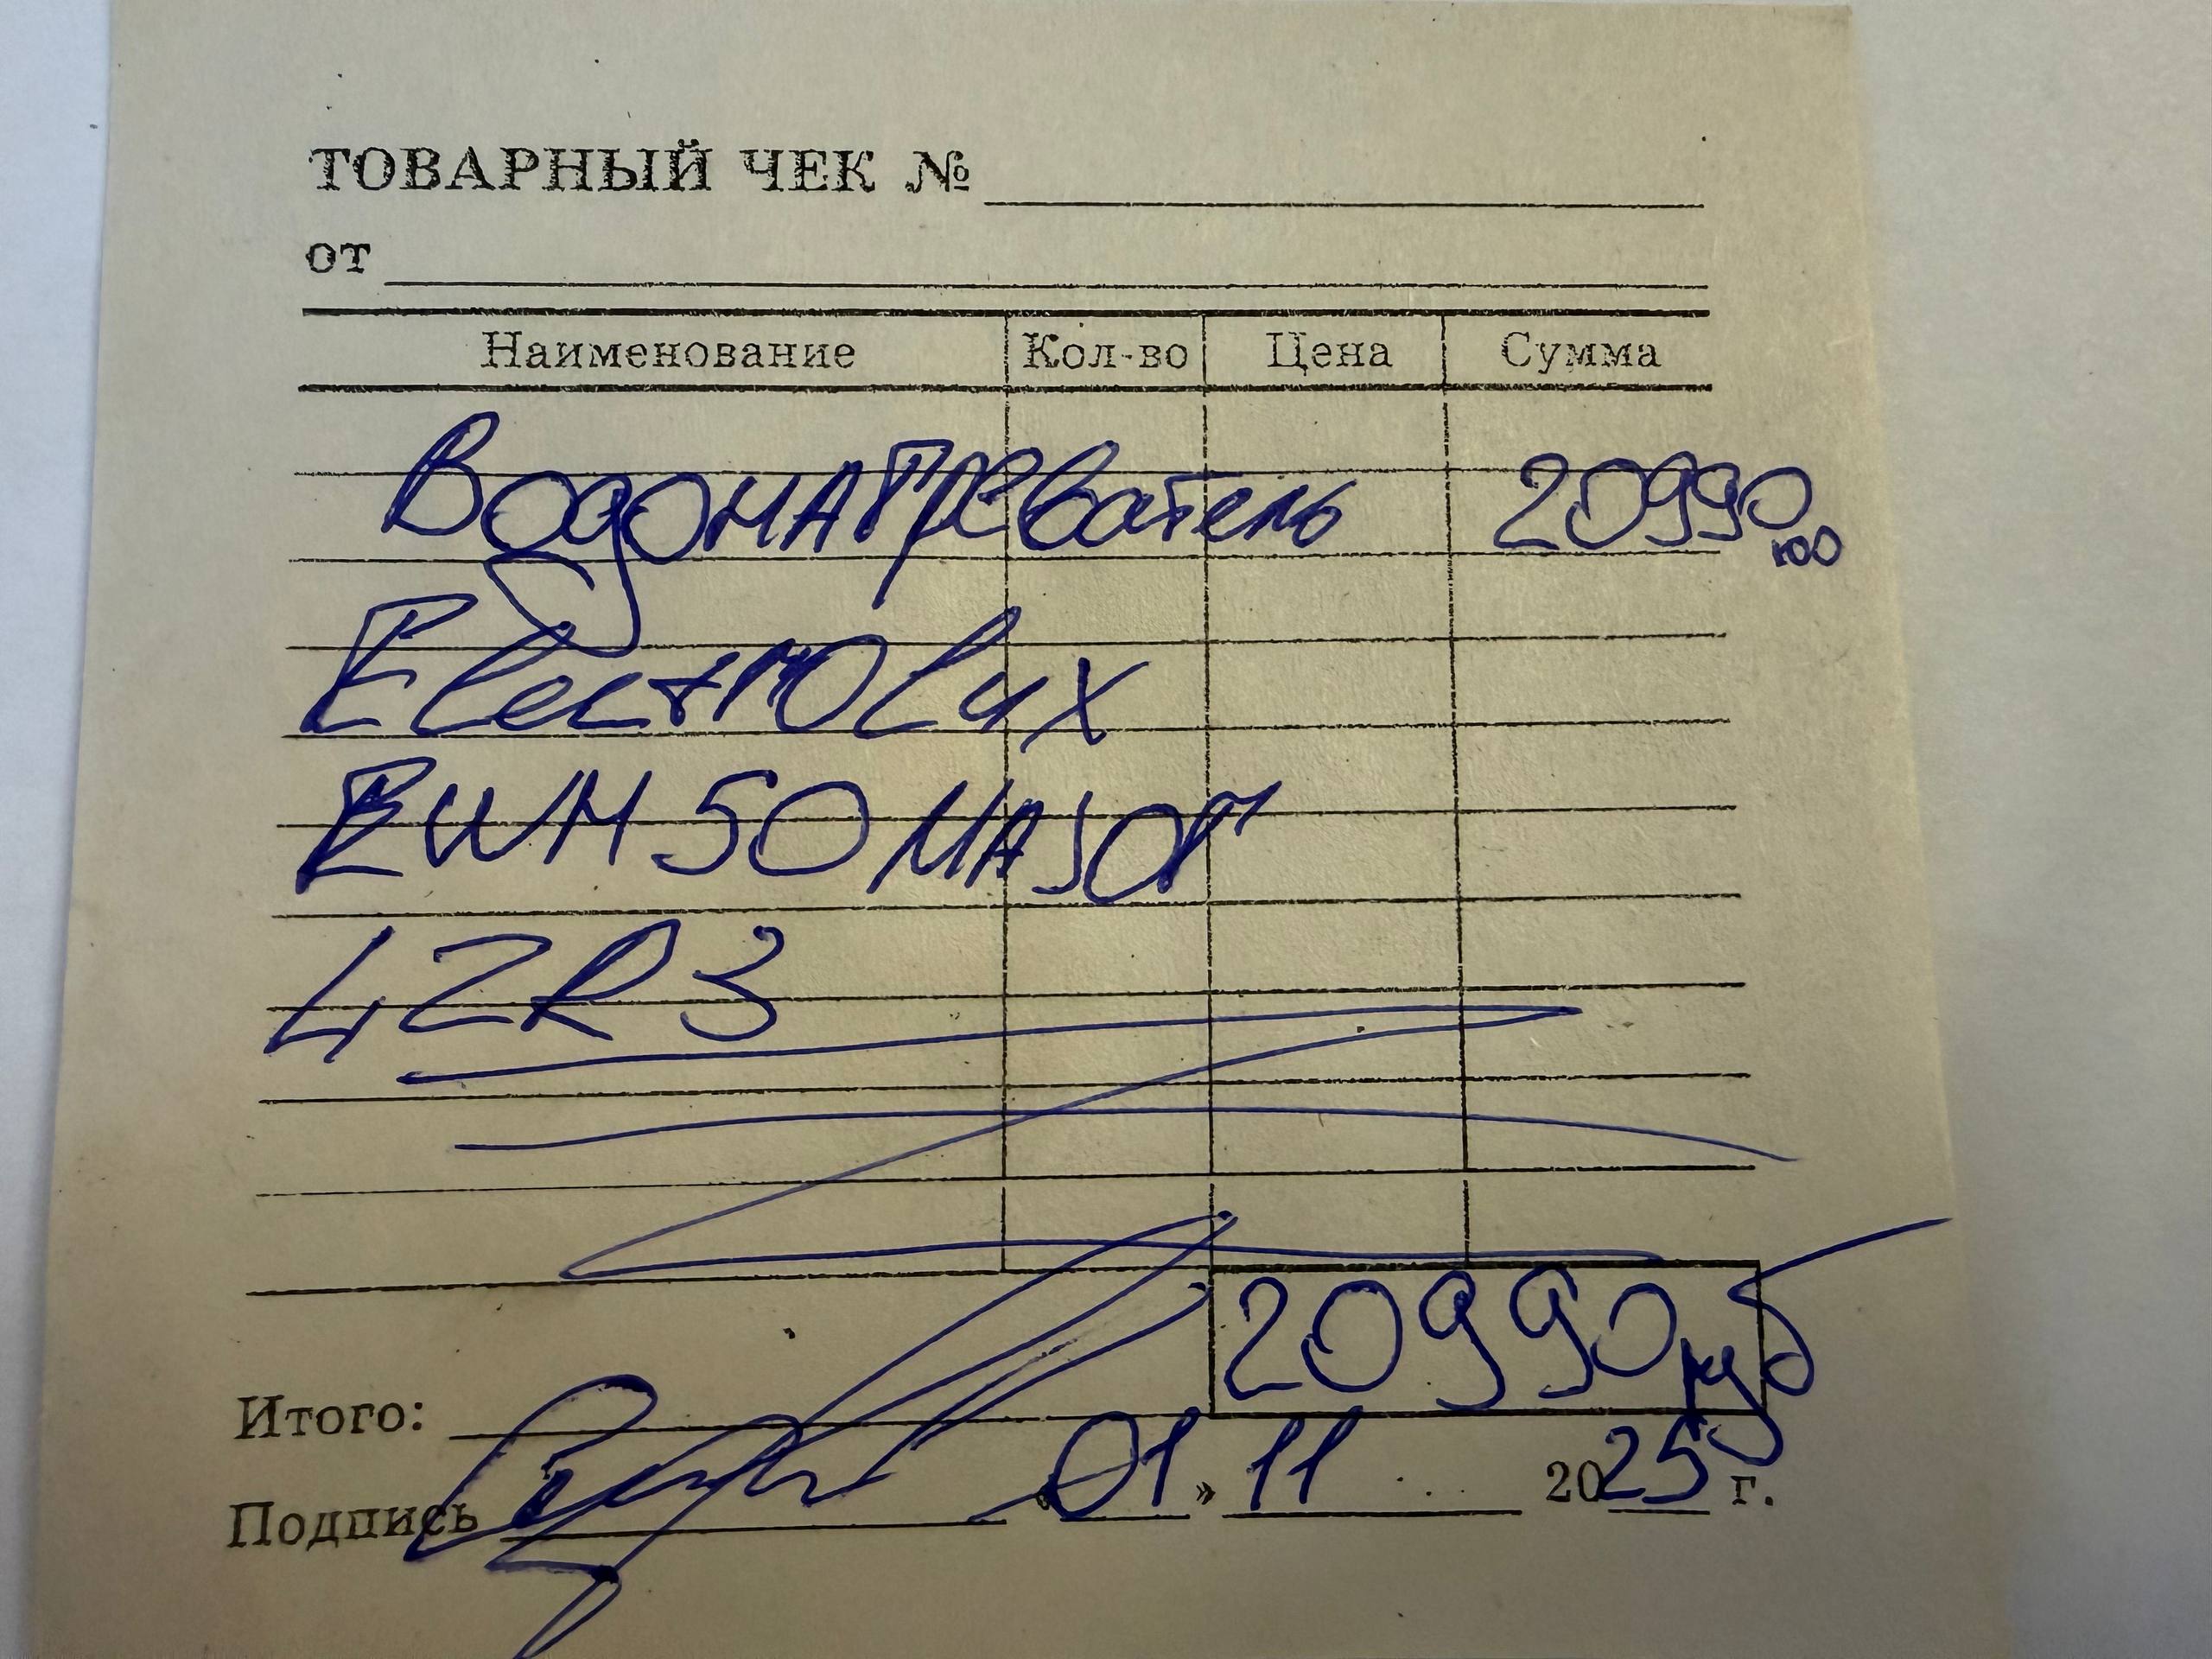 ТОВАРНЫЙ ЧЕК №
от
Наименование Кол-во Цена Сумма
Водонагреватель 20990,00
Electrolux
EWH 50 MAJOr
LZR 3
20990 руб
Итого:
Подпись «01» 11 2025 г.